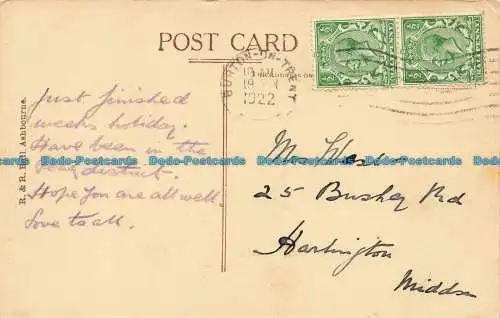 POST CARD
BURTON-ON-TRENT
1922
Just finished
weeks holiday.
Have been in the
district.
Hope you are all well.
Love to all.
25 Bushey Rd
Harlington
Middx
R. & R. Bull. Ashbourne.
Bodo-Postcards Bodo-Postcards Bodo-Postcards Bodo-Postcards Bodo-Postcards